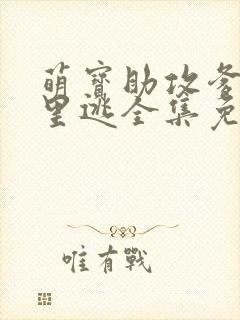 萌寶助攻爹
里逃全集免
唯有戰